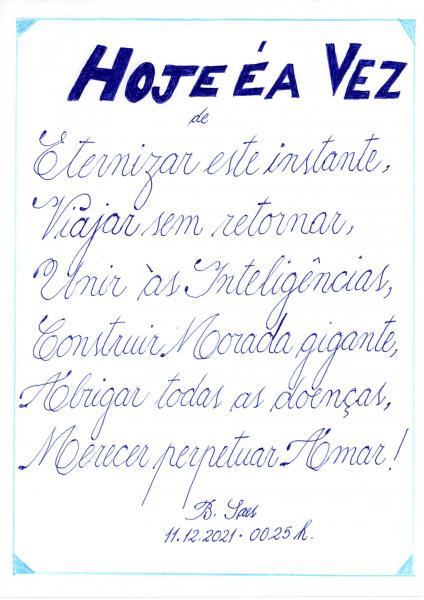 HOJE É A VEZ
de
Eternizar este instante,
Viajar sem retornar,
Unir às Inteligências,
Construir Morada gigante,
Abrigar todas as doenças,
Merecer perpetuar Amar!
B. Saes
11.12.2021 - 0025 h.